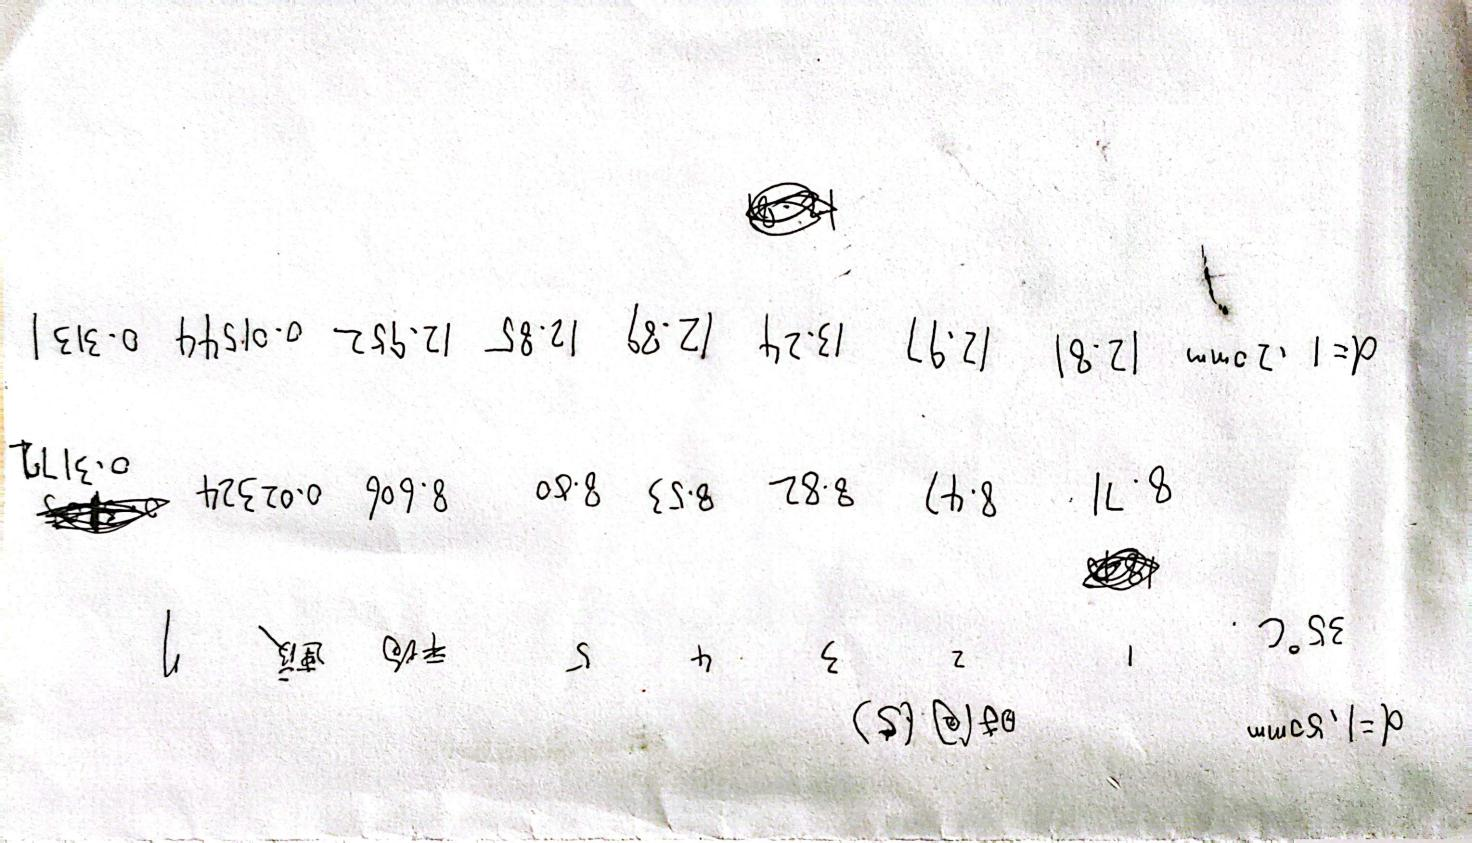 d=1.50mm 时间(s)
35°C 1 2 3 4 5 平均 速度 η
8.71 8.47 8.82 8.53 8.80 8.606 0.02324 0.3172
d=1.20mm 12.81 12.97 13.24 12.89 12.85 12.952 0.01544 0.3131